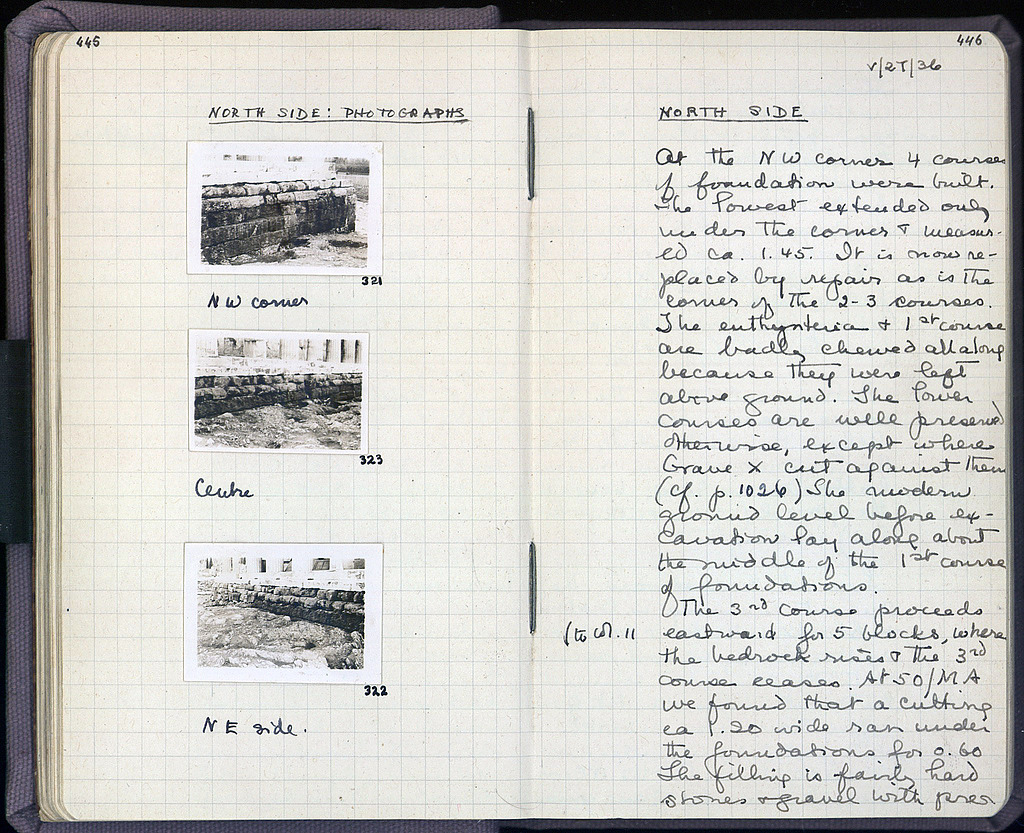 445
NORTH SIDE: PHOTOGRAPHS
321
NW corner
323
Centre
322
NE side.
446
V/27/36
NORTH SIDE
At the NW corner 4 courses
of foundation were built.
The lowest extended only
under the corner & measur-
ed ca. 1.45. It is now re-
placed by repair as is the
corner of the 2-3 courses.
The euthynteria & 1st course
are badly chewed all along
because they were left
above ground. The lower
courses are well preserved
otherwise, except where
Grave X cut against them
(cf. p. 1026) The modern
ground level before ex-
cavation lay along about
the middle of the 1st course
of foundations.
The 3rd course proceeds
(to col. 11
eastward for 5 blocks, where
the bedrock rises & the 3rd
course ceases. At 50/MA
we found that a cutting
ca 1.20 wide ran under
the foundations for 0.60
The filling is fairly hard
stones & gravel with